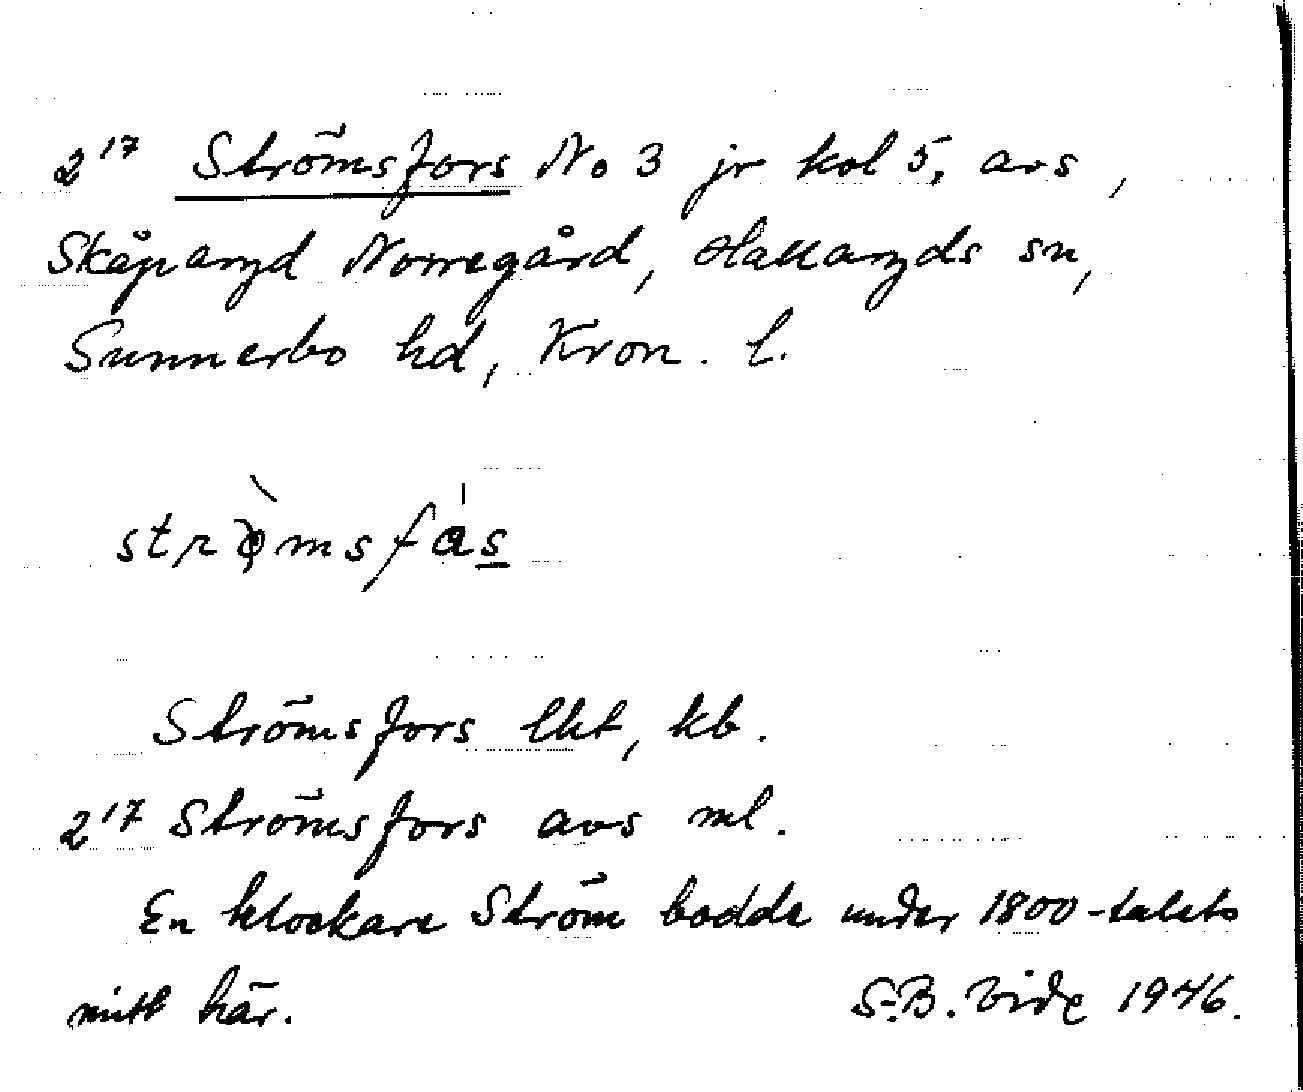 2¹⁷ Strömsfors No 3 jr kol 5, avs,
Skåparyd Norregård, Hallaryds sn,
Sunnerbo hd, Kron. l.
strömsfás
Strömsfors lht, kb.
2¹⁷ Strömsfors avs ml.
En klockare Ström bodde under 1800-talets
mitt här. S-B. Vide 1946.